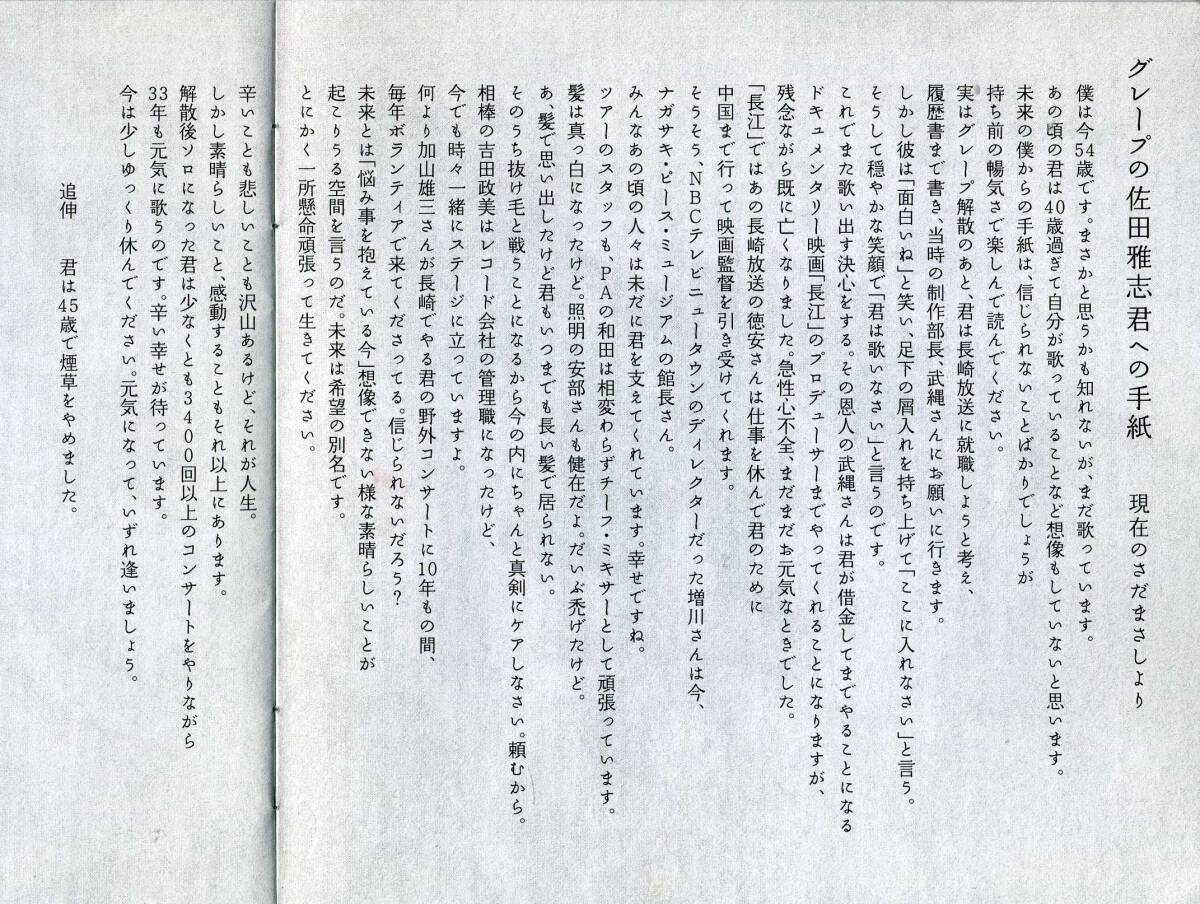 グレープの佐田雅志君への手紙　　現在のさだまさしより
僕は今54歳です。まさかと思うかも知れないが、まだ歌っています。
あの頃の君は40歳過ぎて自分が歌っていることなど想像もしていないと思います。
未来の僕からの手紙は、信じられないことばかりでしょうが
持ち前の暢気さで楽しんで読んでください。
実はグレープ解散のあと、君は長崎放送に就職しようと考え、
履歴書まで書き、当時の制作部長、武縄さんにお願いに行きます。
しかし彼は「面白いね」と笑い、足下の屑入れを持ち上げて「ここに入れなさい」と言う。
そうして穏やかな笑顔で「君は歌いなさい」と言うのです。
これでまた歌い出す決心をする。その恩人の武縄さんは君が借金してまでやることになる
ドキュメンタリー映画「長江」のプロデューサーまでやってくれることになりますが、
残念ながら既に亡くなりました。急性心不全、まだまだお元気なときでした。
「長江」ではあの長崎放送の徳安さんは仕事を休んで君のために
中国まで行って映画監督を引き受けてくれます。
そうそう、NBCテレビニュータウンのディレクターだった増川さんは今、
ナガサキ・ピース・ミュージアムの館長さん。
みんなあの頃の人々は未だに君を支えてくれています。幸せですね。
ツアーのスタッフも、PAの和田は相変わらずチーフ・ミキサーとして頑張っています。
髪は真っ白になったけど。照明の安部さんも健在だよ。だいぶ禿げたけど。
あ、髪で思い出したけど君もいつまでも長い髪で居られない。
そのうち抜け毛と戦うことになるから今の内にちゃんと真剣にケアしなさい。頼むから。
相棒の吉田政美はレコード会社の管理職になったけど、
今でも時々一緒にステージに立っていますよ。
何より加山雄三さんが長崎でやる君の野外コンサートに10年もの間、
毎年ボランティアで来てくださってる。信じられないだろう?
未来とは「悩み事を抱えている今」想像できない様な素晴らしいことが
起こりうる空間を言うのだ。未来は希望の別名です。
とにかく一所懸命頑張って生きてください。
辛いことも悲しいことも沢山あるけど、それが人生。
しかし素晴らしいこと、感動することもそれ以上にあります。
解散後ソロになった君は少なくとも3400回以上のコンサートをやりながら
33年も元気に歌うのです。辛い幸せが待っています。
今は少しゆっくり休んでください。元気になって、いずれ逢いましょう。
追伸　　君は45歳で煙草をやめました。